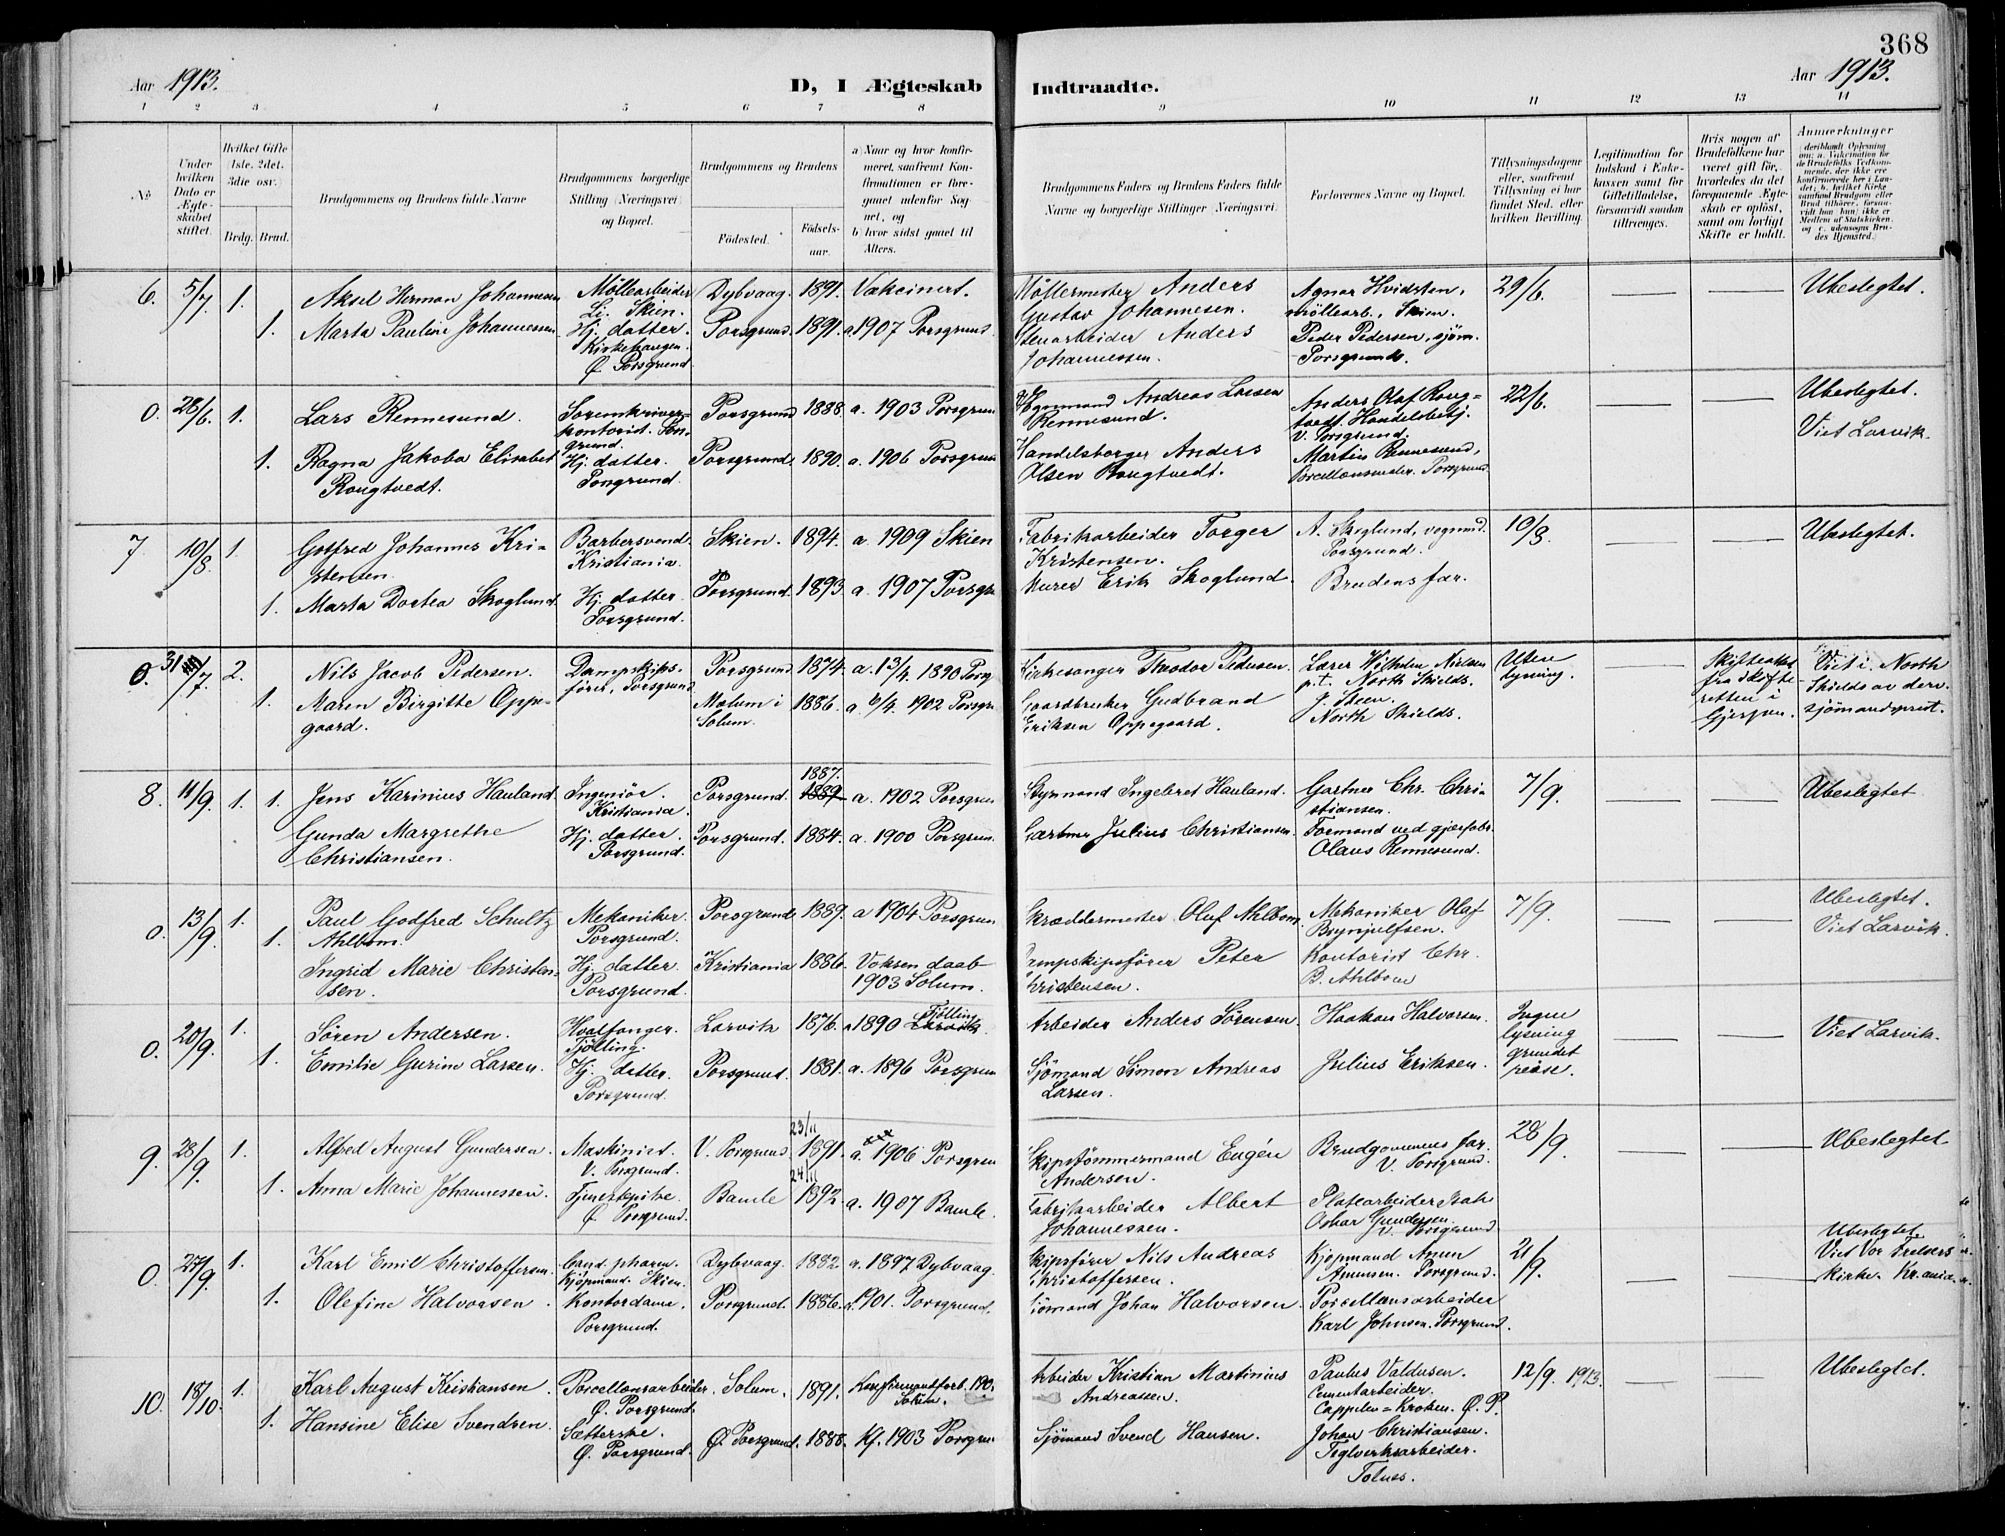 368
Aar 1913.
D, I Ægteskab Indtraadte.
Aar 1913.
1 2 3 4 5 6 7 8 9 10 11 12 13 14
No
Under hvilken Dato er Ægteskabet stiftet.
Hvilket Gifte (1ste, 2det, 3die osv.)
Brdg. Brud.
Brudgommens og Brudens fulde Navne
Brudgommens borgerlige Stilling (Næringsvei) og Bopæl.
Brudgommens og Brudens
Fødested.
Fødselsaar.
a) Naar og hvor konfirmeret, saafremt Konfirmationen er foregaaet udenfor Sognet, og
b) hvor sidst gaaet til Alters.
Brudgommens Faders og Brudens Faders fulde Navne og borgerlige Stillinger (Næringsvei)
Forlovernes Navne og Bopæl.
Tillysningsdagene eller, saafremt Tillysning ei har fundet Sted, efter hvilken Bevilling.
Legitimation for Indskud i Enkekassen samt for Giftetilladelse, forsaavidt saadan tiltrænges.
Hvis nogen af Brudefolkene har været gift før, hvorledes da det foregaaende Ægteskab er opløst, samt om lovligt Skifte er holdt.
Anmerkninger
6. 5/7. 1. Aksel Herman Johannesen Møllearbeider Li. Skien. Dybvaag. 1891. Vakcinert. Møllermester Anders Gustav Johannesen. Agnar Hvidsten, møllearb., Skien. 29/6. Ubeslegtet.
1. Marta Pauline Johannessen Hj. datter. Kirkehaugen. Ø. Porsgrund Porsgrund. 1891. a. 1907 Porsgrund Stenarbeider Anders Johannessen. Peder Pedersen, sjøm. Porsgrund.
0. 28/6. 1. Lars Rennesund. Sorenskriverkontorist. Porsgrund. Porsgrund 1888. a. 1903 Porsgrun Andreas Larsen Rennesund. Anders Olaf Rougtvedt. Handelsbetj. V. Porsgrund. 22/6. Ubeslegtet. Viet Larvik.
1. Ragna Jakoba Elisabet Rougtvedt. Hj. datter. Porsgrund. Porsgrund. 1890. a. 1906 Porsgrun Handelsborger Anders Olsen Rougtvedt. Martin Rennesund, Porcellænsmaler. Porsgrund
7. 10/8 1. Gotfred Johannes Kristensen. Barbersvend. Kristiania. Skien. 1894. a. 1909 Skien Fabrikarbeider Torger Kristensen. A. Skoglund, vognmd. Porsgrund. 10/8. Ubeslegtet.
1. Marta Dortea Skoglund. Hj. datter. Porsgrund. Porsgrund. 1893. a. 1907 Porsgr Murer Erik Skoglund. Brudens far.
0. 31/7. 2. Nils Jacob Pedersen. Dampskibsfører, Porsgrund. Porsgrund 1874. a. 13/4. 1890 Porsg Kirkesanger Theodor Pedersen. Lærer Wilhelm Nielsen p.t. North Shields. Uten lysning. Skifteattest fra skifteretten i Gjerpen. Viet i North Shields av derv. sjømandsprest.
1. Maren Birgitte Oppegaard. Melum i Solum. 1886. a. 6/4. 1902 Porsgr Gaardbruker Gudbrand Eriksen Oppegaard. J. Steen. North Shields.
8. 11/9. 1. 1. Jens Karinius Hauland Ingeniør. Kristiania. Porsgrund. 1887. 1889 a. 1902 Porsgrun Styrmand Ingebret Hauland. Gartner Chr. Christiansen. 7/9. Ubeslegtet
Gunda Margrethe Christiansen. Hj. datter. Porsgrund. Porsgrund. 1884. a. 1900 Porsgrun Gartner Julius Christiansen. Formand ved gjærfabr. Olaus Rennesund.
0. 13/9. 1. Paul Godfred Schultz Ahlbom. Mekaniker. Porsgrund. Porsgrund 1889. a 1904 Porsgrun Skræddermester Oluf Ahlbom. Mekaniker Olaf Brynjulfsen. 7/9. Ubeslegtet. Viet Larvik.
1. Ingrid Marie Christensen. Hj. datter. Porsgrund. Kristiania 1886. Voksen daab 1903 Solum. Dampskipsfører Peter Christensen. Kontorist Chr. B. Ahlbom
0. 20/9. 1. Søren Andersen. Hvalfanger. Tjølling. Larvik 1876. a 1890 Larvik. Tjølling Arbeider Anders Sørensen. Haakon Halvorsen. Ingen lysning grundet reise. Viet Larvik.
1. Emilie Gurine Larsen. Hj. datter. Porsgrund. Porsgrund. 1881. a. 1896 Porsgrun Sjømand Simon Andreas Larsen. Julius Eriksen.
9. 28/9. 1. Alfred August Gundersen. Maskinist. V. Porsgrund. V. Porsgrund 23/11 1891. a. 1906 Porsgrun Skipstømmermand Eugén Andersen. Brudgommens far. V. Porsgrund. 28/9. Ubeslegtet
1. Anna Marie Johannessen. Tjenestepike. Ø. Porsgrund. Bamle 24/11 1892. a. 1907 Bamle. Fabrikarbeider Albert Johannessen. Platearbeider Isak Oskar Gundersen. V. Porsgrund
0. 27/9. 1. Karl Emil Christoffersen. Cand. pharm. Kjøpmand. Skien. Dybvaag. 1882. a. 1897 Dybvaag. Skipsfører Nils Andreas Christoffersen. Kjøpmand Anun Amensen. Porsgrund. 21/9. Ubeslegtet Viet Vor Frelsers kirke. Kr.ania.
1. Olefine Halvorsen. Kontordame. Porsgrund. Porsgrund. 1886. a. 1901. Porsgrund. Sjømand Johan Halvorsen. Porcellænsarbeider Karl Johnsen. Porsgrund.
10. 18/10. 1. Karl August Kristiansen. Porcellænsarbeider. Ø. Porsgrund. Solum. 1891. Arbeider Kristian Martinius Andreassen. Paulus Valdusen. Cementarbeider. Cappelen=Kroken. Ø. P. 12/9. 1913. Ubeslegtet.
1. Hansine Elise Svendsen. Sætterske. Ø. Porsgrund. Ø. Porsgrund. 1888. Kf. 1903 Porsgrun Sjømand Svend Hansen. Johan Christiansen. Teglverksarbeider. Tolnes.